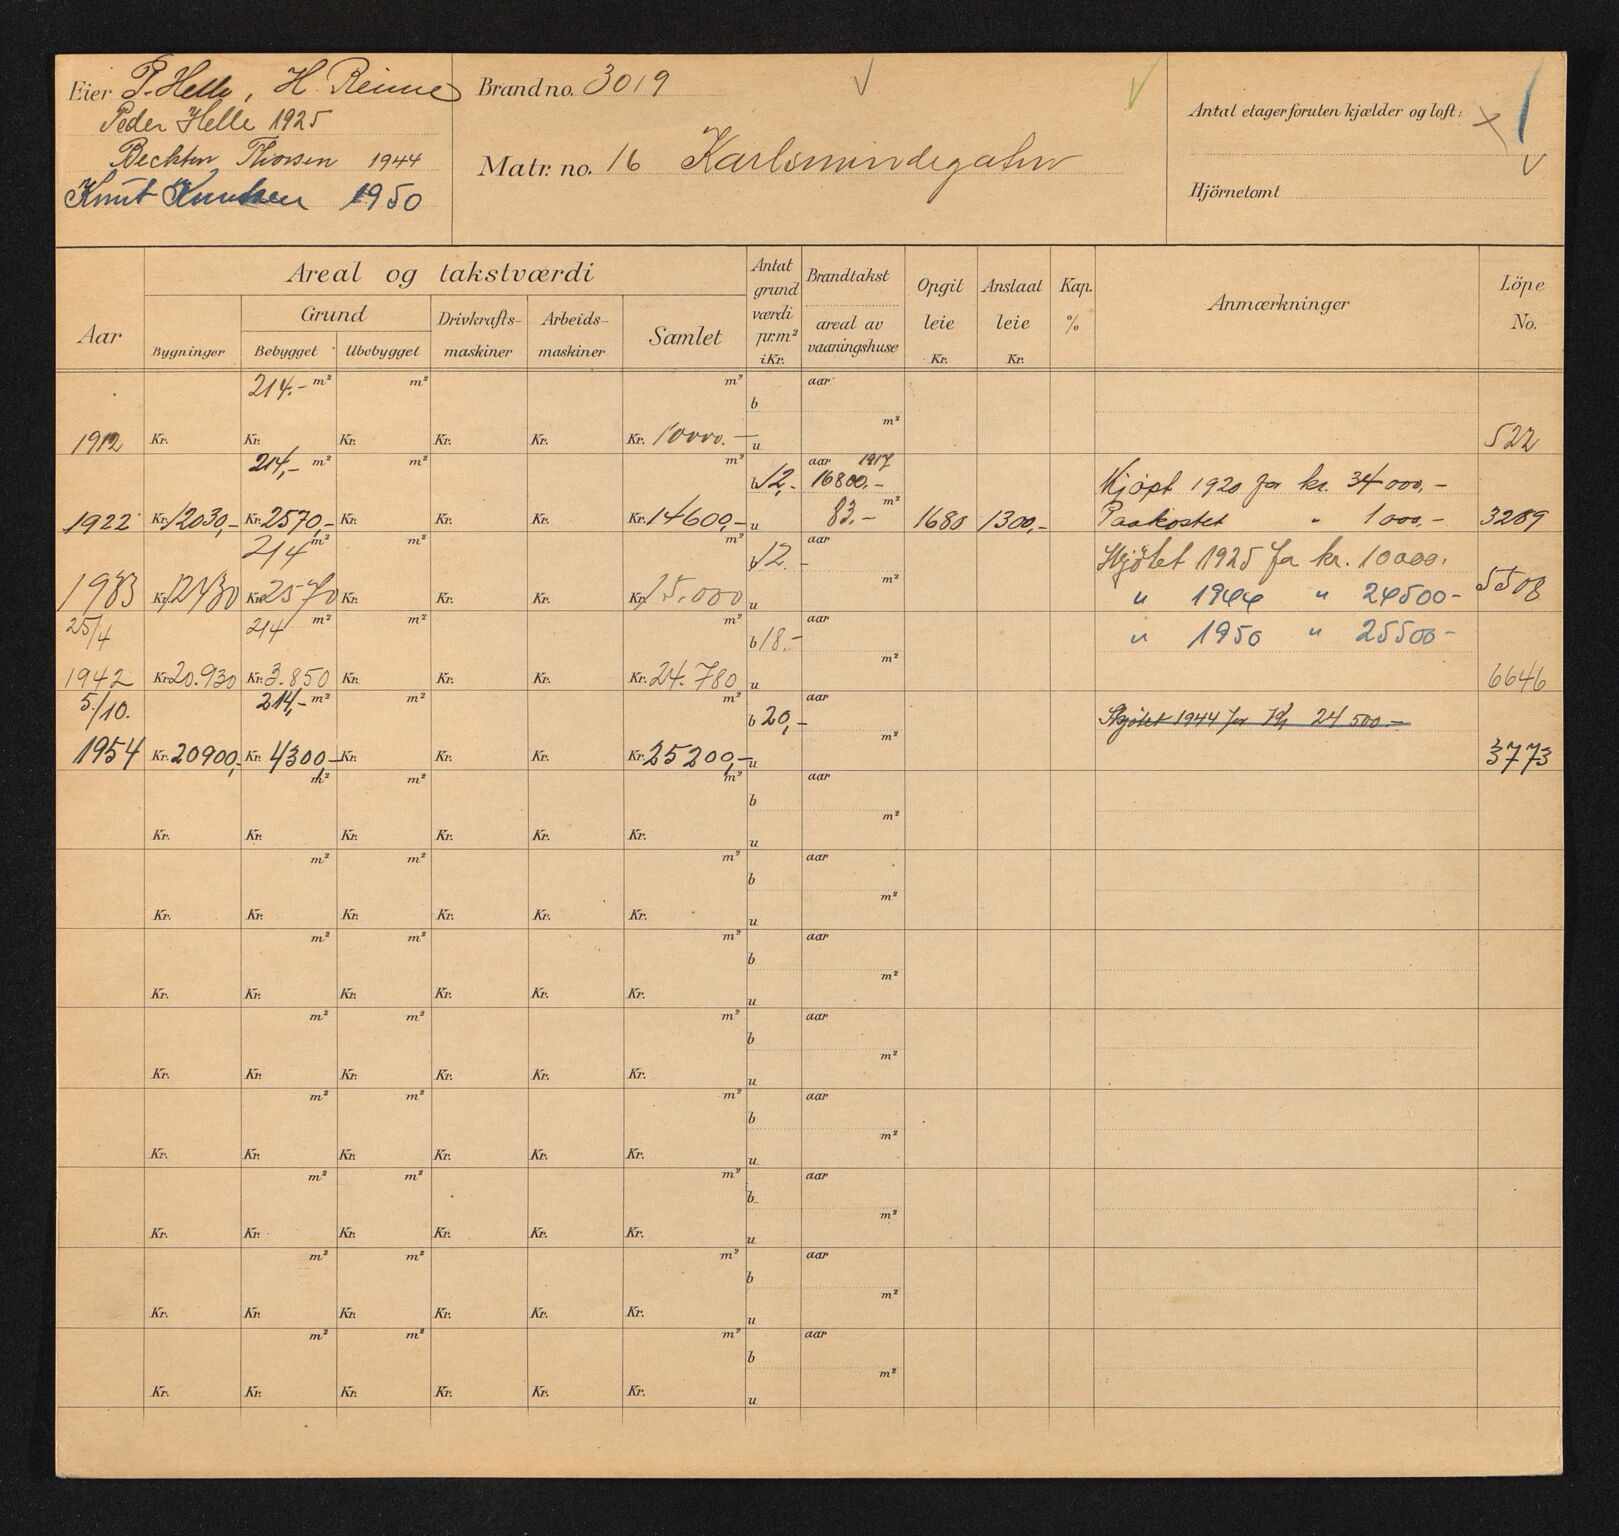 Eier P. Helle, H. Reime
Peder Helle 1925
Thorsen 1944
Knut Knutsen 1950
Brand no. 3019
Matr. no. 16 Karlsmindegaten
Antal etager foruten kjælder og loft:
Hjörnetomt
Aar
Areal og takstværdi
Bygninger
Grund
Bebygget Ubebygget
Drivkrafts-
maskiner
Arbeids-
maskiner
Samlet
Antat
grund
værdi
pr. m²
i Kr.
Brandtakst
areal av
vaaningshuse
Opgit
leie
Kr.
Anslaat
leie
Kr.
Kap.
%
Anmærkninger
Löpe
No.
214.- m² m² m² aar
b
m²
1912 Kr. Kr. Kr. Kr. Kr. Kr. 10000.- u 522
214,- m² m² m² aar 1917
b 12,- 16800,- Kjøpt 1920 for kr. 34000,-
1922 Kr. 12030,- Kr. 2570,- Kr. Kr. Kr. Kr. 14600,- u 83.- m² 1680 1300,- Paakostet " 1000,- 3289
214 m² m² m² aar
b 12.- Skjøtet 1925 for kr. 10000.
m²
1933 Kr. 12430 Kr. 2570 Kr. Kr. Kr. Kr. 15.000 u " 1944 " 24500- 5508
25/4 214 m² m² m² aar
b 18.- " 1950 " 25500-
m²
1942 Kr. 20.930 Kr. 3.850 Kr. Kr. Kr. Kr. 24.780 u 6646
5/10. 214,- m² m² m² aar
b 20,- Skjøtet 1944 for Kr. 24500-
m²
1954 Kr. 20900,- Kr. 4300,- Kr. Kr. Kr. Kr. 25200,- u 3773
m² m² m² aar
b
m²
Kr. Kr. Kr. Kr. Kr. Kr. u
m² m² m² aar
b
m²
Kr. Kr. Kr. Kr. Kr. Kr. u
m² m² m² aar
b
m²
Kr. Kr. Kr. Kr. Kr. Kr. u
m² m² m² aar
b
m²
Kr. Kr. Kr. Kr. Kr. Kr. u
m² m² m² aar
b
m²
Kr. Kr. Kr. Kr. Kr. Kr. u
m² m² m² aar
b
m²
Kr. Kr. Kr. Kr. Kr. Kr. u
m² m² m² aar
b
m²
Kr. Kr. Kr. Kr. Kr. Kr. u
m² m² m² aar
b
m²
Kr. Kr. Kr. Kr. Kr. Kr. u